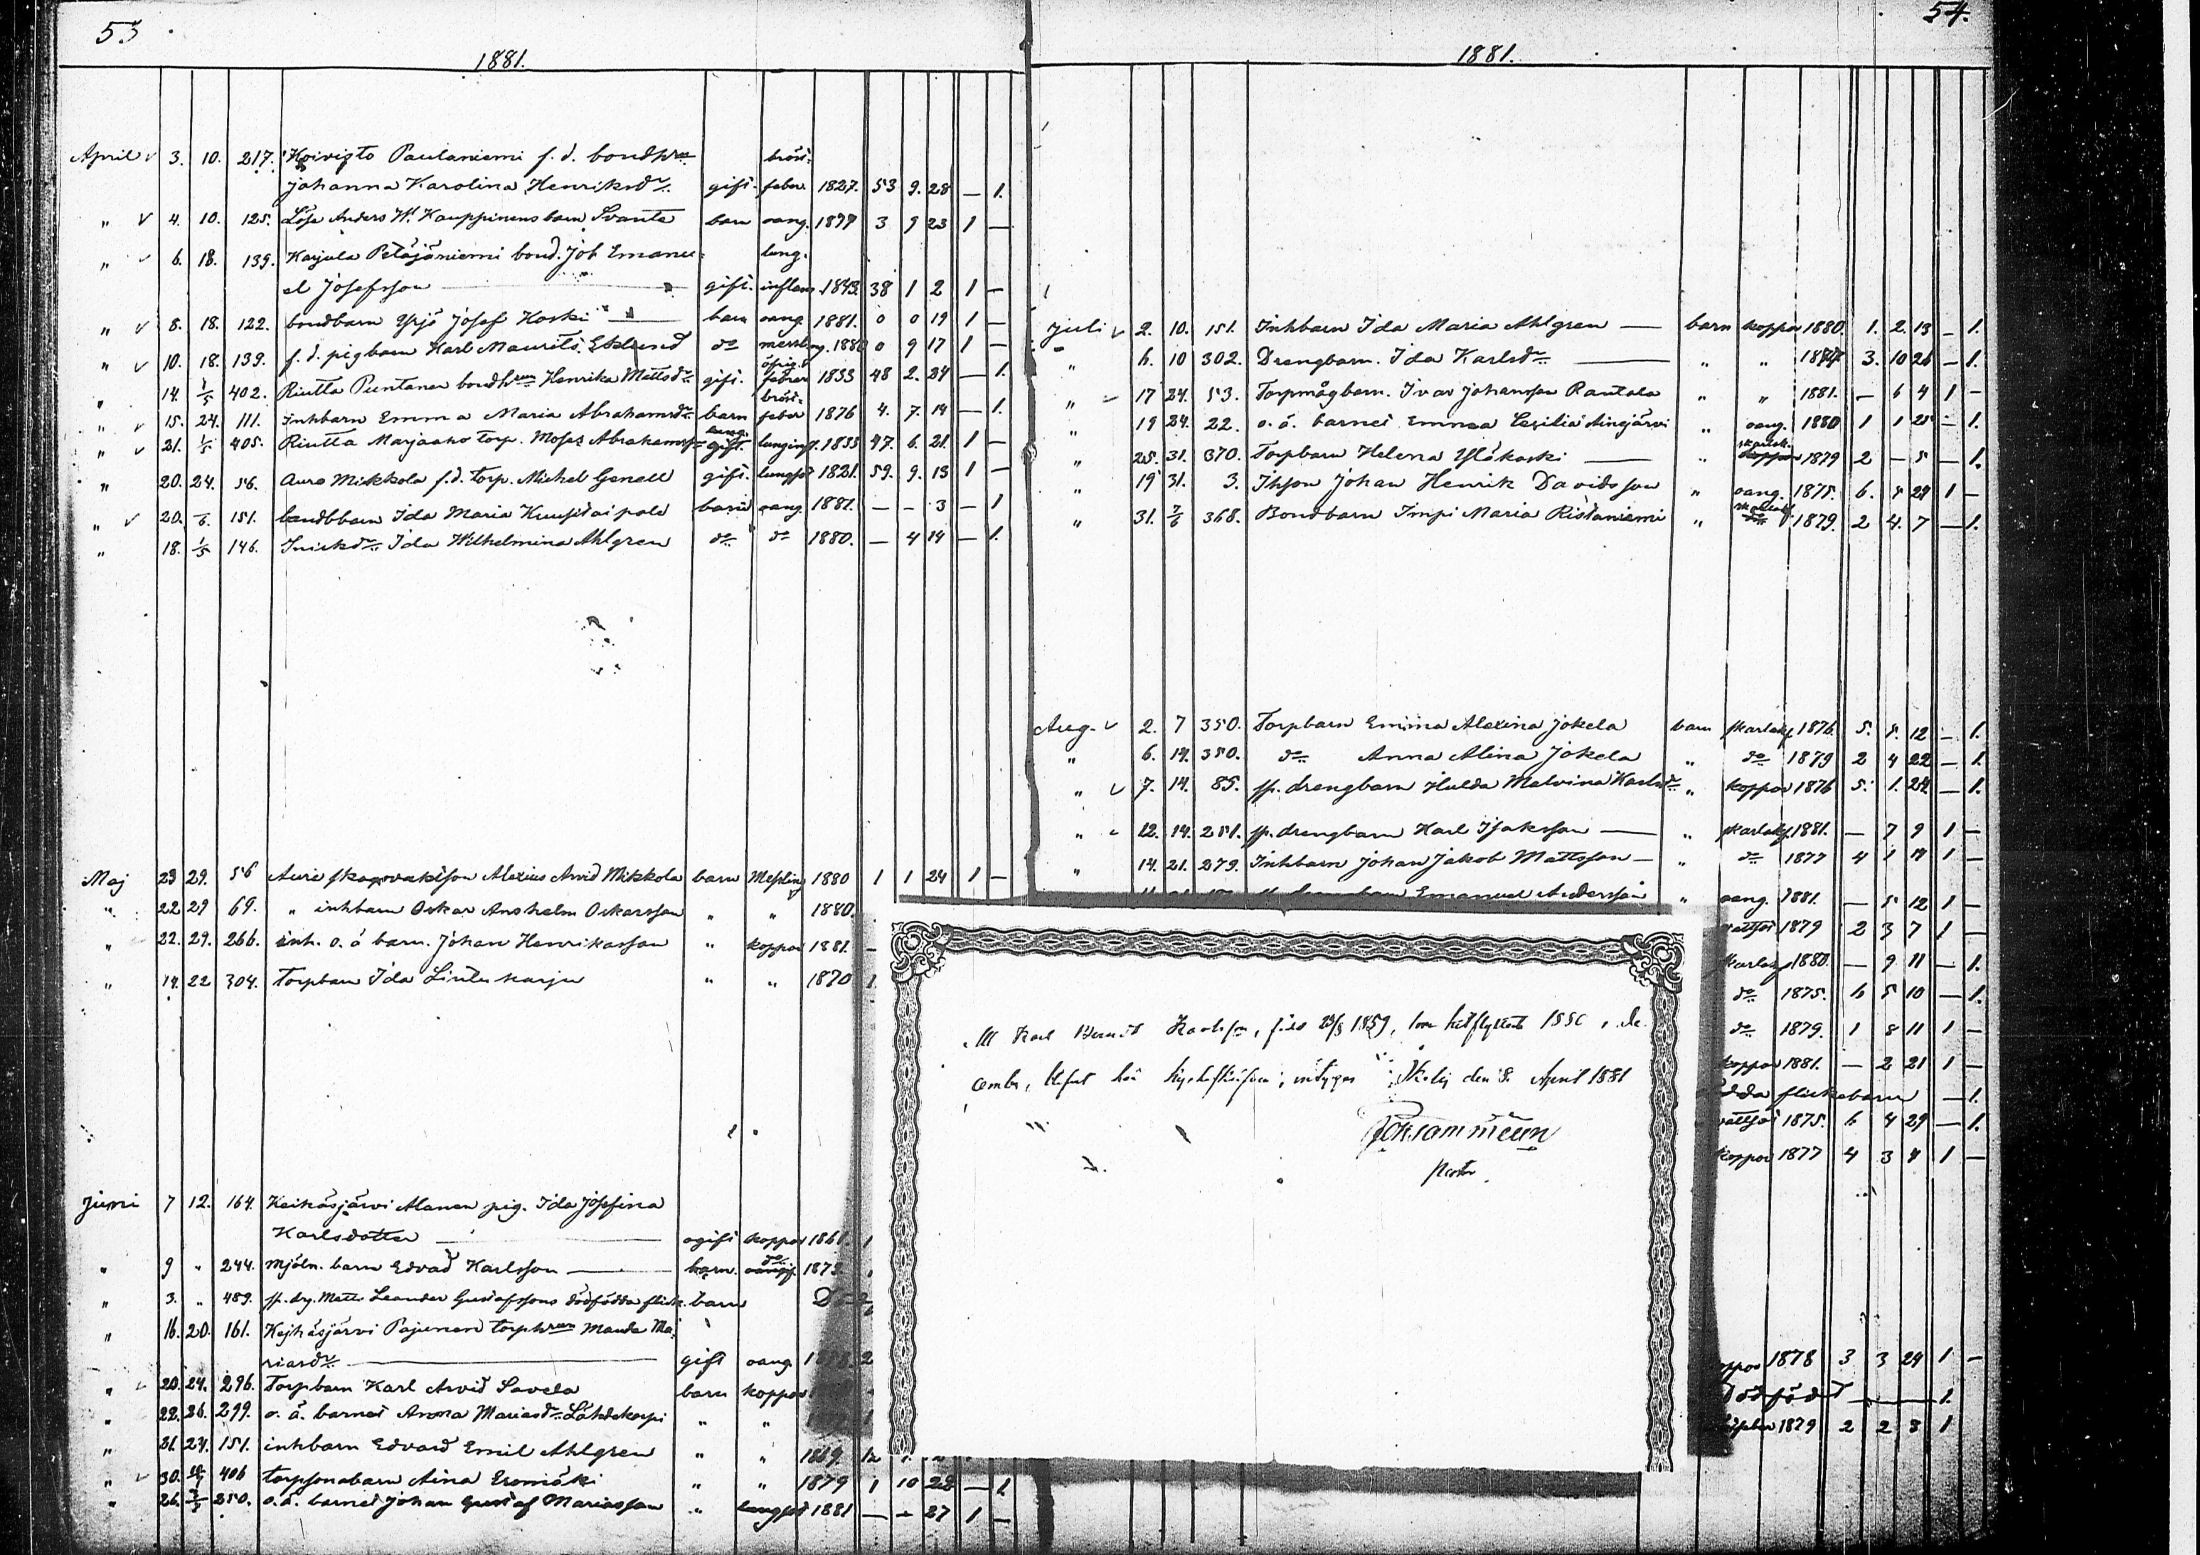 53
1881.
April 3. 10. 217. Koivisto Paulaniemi f.d. bondhrun bröst-
Johanna Karolina Henriksdr. gift. feber 1827. 53 9. 28 — 1.
" 4. 10. 125. Löse Anders Kauppinens barn Svante barn oang. 3 9 23 1 —
" 6. 18. 139. Karjula Petäjäniemi bond. Joh Emanu- lung-
el Josefsson — gift. inflam. 1843. 38 1 2 1 —
" 8. 18. 122. bondbarn Yrjö Josef Koski — barn oang. 1881. 0 0 19 1 —
" 10. 18. 139. f.d. pigbarn Karl Maurits Eklund do messling. 1880 0 9 17 1 —
" 14. 1/5 402. Riutta Puntanen bondhrun Henrika Mattsdr. gift. feber 1833 48 2. 24 — 1.
" 15. 24. 111. Inhbarn Emma Maria Abrahamsdr. barn bröst-feber 1876 4. 7. 14 — 1.
" 21. 1/5 405. Riutta Marjaaho torp. Moses Abrahamss. gift. lunginf. 1833 47. 6. 21. 1 —
" 20. 24. 56. Auro Mikkola f.d. torp. Michel Genell gift. lungsot 1821. 59. 9. 13 1 —
" 20. 151. Ida Maria barn oang 1881. — — 3 — 1
" 18. 1/5 146. Ida Wilhelmina Ahlgren do do 1880. — 4 14 — 1.
Maj 23 29. 56 Aure Alexius Arvid Mikkola barn Messling 1880 1 1 24 1 —
" 22 29 69. " inhbarn Oskar Anshelm Oskarsson " " 1880.
" 22. 29. 266. inh. o.ä barn. Johan Henriksson " koppor 1881. —
" 14. 22 304. Torpbarn Ida Lintuharju " " 1870 1
Juni 7 12. 164. Keikäsjärvi Alanen pig. Ida Josefina
Karlsdotter — ogift koppor 1861. 1
" 9 " 244. Mjöln. barn Edvad Karlsson — barn. do
" 3. " 489. sp. drg. Matts Leander Gustafssons dödfödda flick. barn
" 16. 20. 161. Kejhäsjärvi Pajunen torphrun Manda Ma-
riasdr. — gift oang. 2
" 20. 24. 296. Torpbarn Karl Arvid Savela barn koppor
" 22. 26. 299. o.ä. barnet Anna Mariasdr. Lähdekorpi " "
" 21. 24. 151. inhbarn Edvard Emil Ahlgren " " 1869. 12
" 30. 406 torpsonabarn Aina Eromäki " " 1879 1 10 28 — 1.
" 26. 250. o.ä. barnet Johan Gustaf Mariasson " lungsot 1881 — — 27 1 —
54.
1881.
Juli 2. 10. 151. Inhbarn Ida Maria Ahlgren — barn koppor 1880. 1. 2. 13 — 1.
" 6. 10 302. Drengbarn. Ida Karlsdr. — " " 3. 10 26 — 1.
" 17 24. 53. Torpmågbarn. Ivar Johansson Rantala " " 1881. — 6 4 1 —
" 19 24. 22. o.ä. barnet Emma Cesilia Ainejärvi " oang. 1880 1 1 25 — 1.
" 25. 31. 370. Torpbarn Helena Yläkoski — " skarlak. 1879 2 — 5 — 1.
" 19 31. 3. Ihson Johan Henrik Davidsson " oang. 1875. 6. 29 1 —
" 31. 368. Bondbarn Impi Maria Ristaniemi " 1879. 2 4. 7 — 1.
Aug. 2. 7 350. Torpbarn Emma Alexina Jokela barn skarlakf. 1876. 5. 5. 12 — 1.
" 6. 14. 350. do Anna Alina Jokela " do 1879 2 4 22 — 1.
" 7. 14. 85. sp. drengbarn Hulda Malvina Karlsdr. " koppor 1876 5. 1. 24. — 1.
" 12. 14. 251. sp. drengbarn Karl Isaksson — " skarlakf. 1881. — 7 9 1 —
" 14. 21. 279. Inhbarn Johan Jakob Mattsson — " do 1877 4 1 1 —
Emanuel Andersson " oang. 1881. — 5 12 1 —
1879 2 3 7 1 —
skarlakf 1880. — 9 11 — 1.
do 1875. 6 5 10 — 1.
do 1879. 1 8 11 1 —
koppor 1881. — 2 21 1 —
flickebarn — 1.
1875. 6 4 29 — 1.
koppor 1877 4 3 4 1 —
koppor 1878 3 3 24 1 —
dödfödt — 1.
1879 2 2 3 1
Att Karl Karlsson, född 1859, som hitflyttat i De-
cember, intygar den 8. April 1881
Pastor